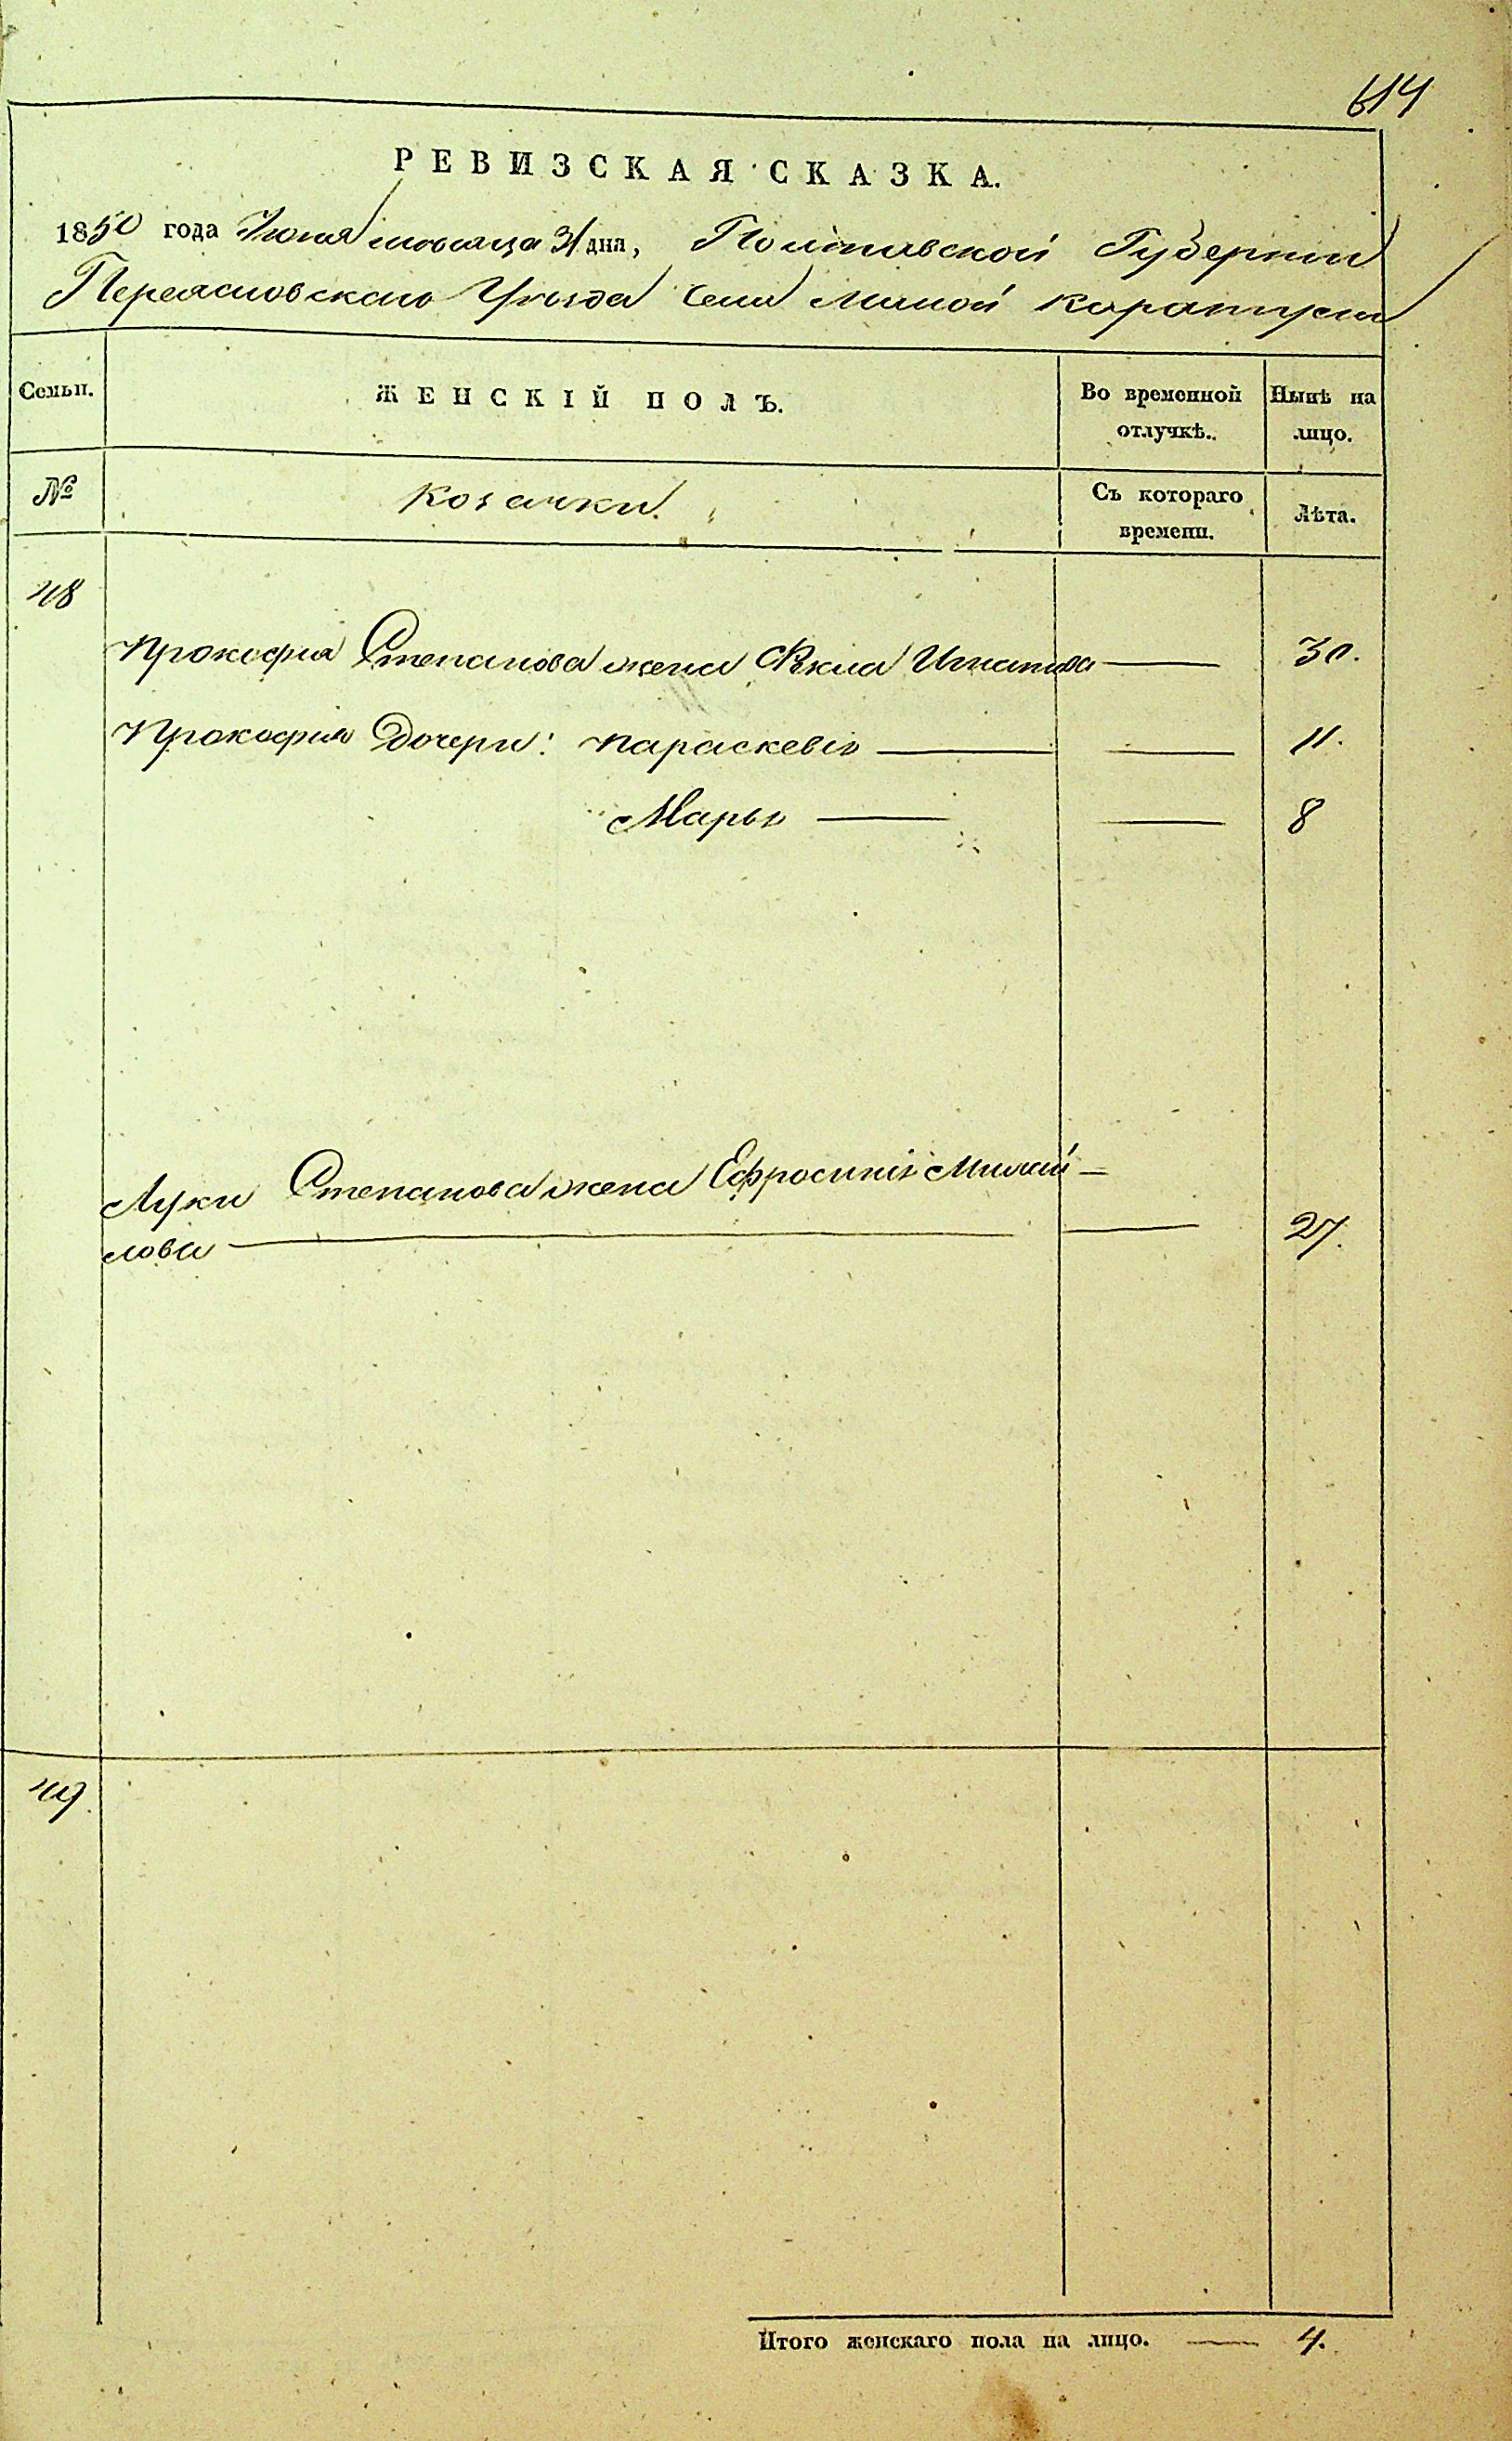 614
РЕВИЗСКАЯ СКАЗКА.
1850 года Июня месяца 31 дня, Полтавской Губернии
Переясловскаго Уѣзда Села Малой Каратули
Семьи.
ЖЕНСКІЙ ПОЛЪ.
Во временной отлучкѣ.
Нынѣ на лицо.
№
Козачки.
Съ котораго времени.
Лѣта.
48
Прокофия Степанова жена Ѳекла Игнатова 30.
Прокофия дочери: Параскевія 11.
Марья 8
Луки Степанова жена Ефросинія Михай-
лова 27.
49.
Итого женскаго пола на лицо. 4.